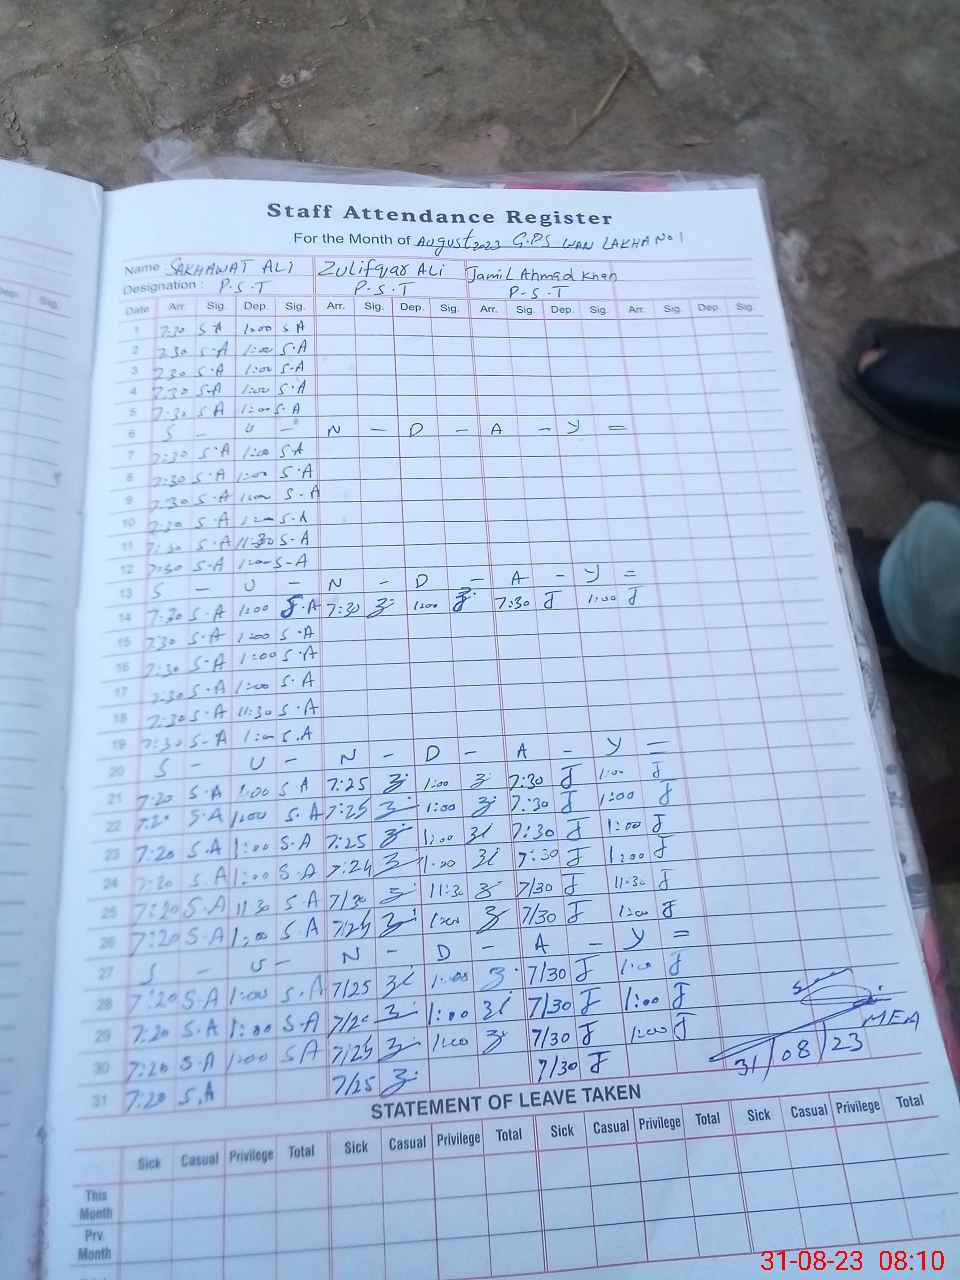 Staff Attendance Register
For the Month of August 2023 G.P.S WAN LAKHA No 1
Name SAKHAWAT ALI Zulifqar ALi Jamil Ahmad Khan
Designation : P.S.T P.S.T P.S.T
Date Arr. Sig. Dep. Sig. Arr. Sig. Dep. Sig. Arr. Sig. Dep. Sig. Arr. Sig. Dep. Sig.
Dep. Sig.
1 7:30 S.A 1:00 S.A
2 7:30 S.A 1:00 S.A
3 7:30 S.A 1:00 S.A
4 7:30 S.A 1:00 S.A
5 7:30 S.A 1:00 S.A
6 S - U - N - D - A - Y =
7 7:30 S.A 1:00 S.A
8 7:30 S.A 1:00 S.A
9 7:30 S.A 1:00 S.A
10 7:30 S.A 1:00 S.A
11 7:30 S.A 11:30 S.A
12 7:30 S.A 1:00 S.A
13 S - U - N - D - A - Y =
14 7:30 S.A 1:00 S.A 7:30 1:00 7:30 J 1:00 J
15 7:30 S.A 1:00 S.A
16 7:30 S.A 1:00 S.A
17 7:30 S.A 1:00 S.A
18 7:30 S.A 11:30 S.A
19 7:30 S.A 1:00 S.A
20 S - U - N - D - A - Y =
21 7:20 S.A 1:00 S.A 7:25 1:00 7:30 J 1:00 J
22 7:20 S.A 1:00 S.A 7:25 1:00 7:30 J 1:00 J
23 7:20 S.A 1:00 S.A 7:25 1:00 7:30 J 1:00 J
24 7:20 S.A 1:00 S.A 7:24 1:00 7:30 J 1:00 J
25 7:20 S.A 11:30 S.A 7/30 11:30 7/30 J 11:30 J
26 7:20 S.A 1:00 S.A 7/25 1:00 7/30 J 1:00 J
27 S - U - N - D - A - Y =
28 7:20 S.A 1:00 S.A 7/25 1:00 7/30 J 1:00 J
29 7:20 S.A 1:00 S.A 7/20 1:00 7/30 J 1:00 J
30 7:20 S.A 1:00 S.A 7/25 1:00 7/30 J 1:00 J
31 7:20 S.A 7/25 7/30 J
MEA
31/08/23
STATEMENT OF LEAVE TAKEN
Sick Casual Privilege Total Sick Casual Privilege Total Sick Casual Privilege Total Sick Casual Privilege Total
This Month
Prv. Month
31-08-23 08:10